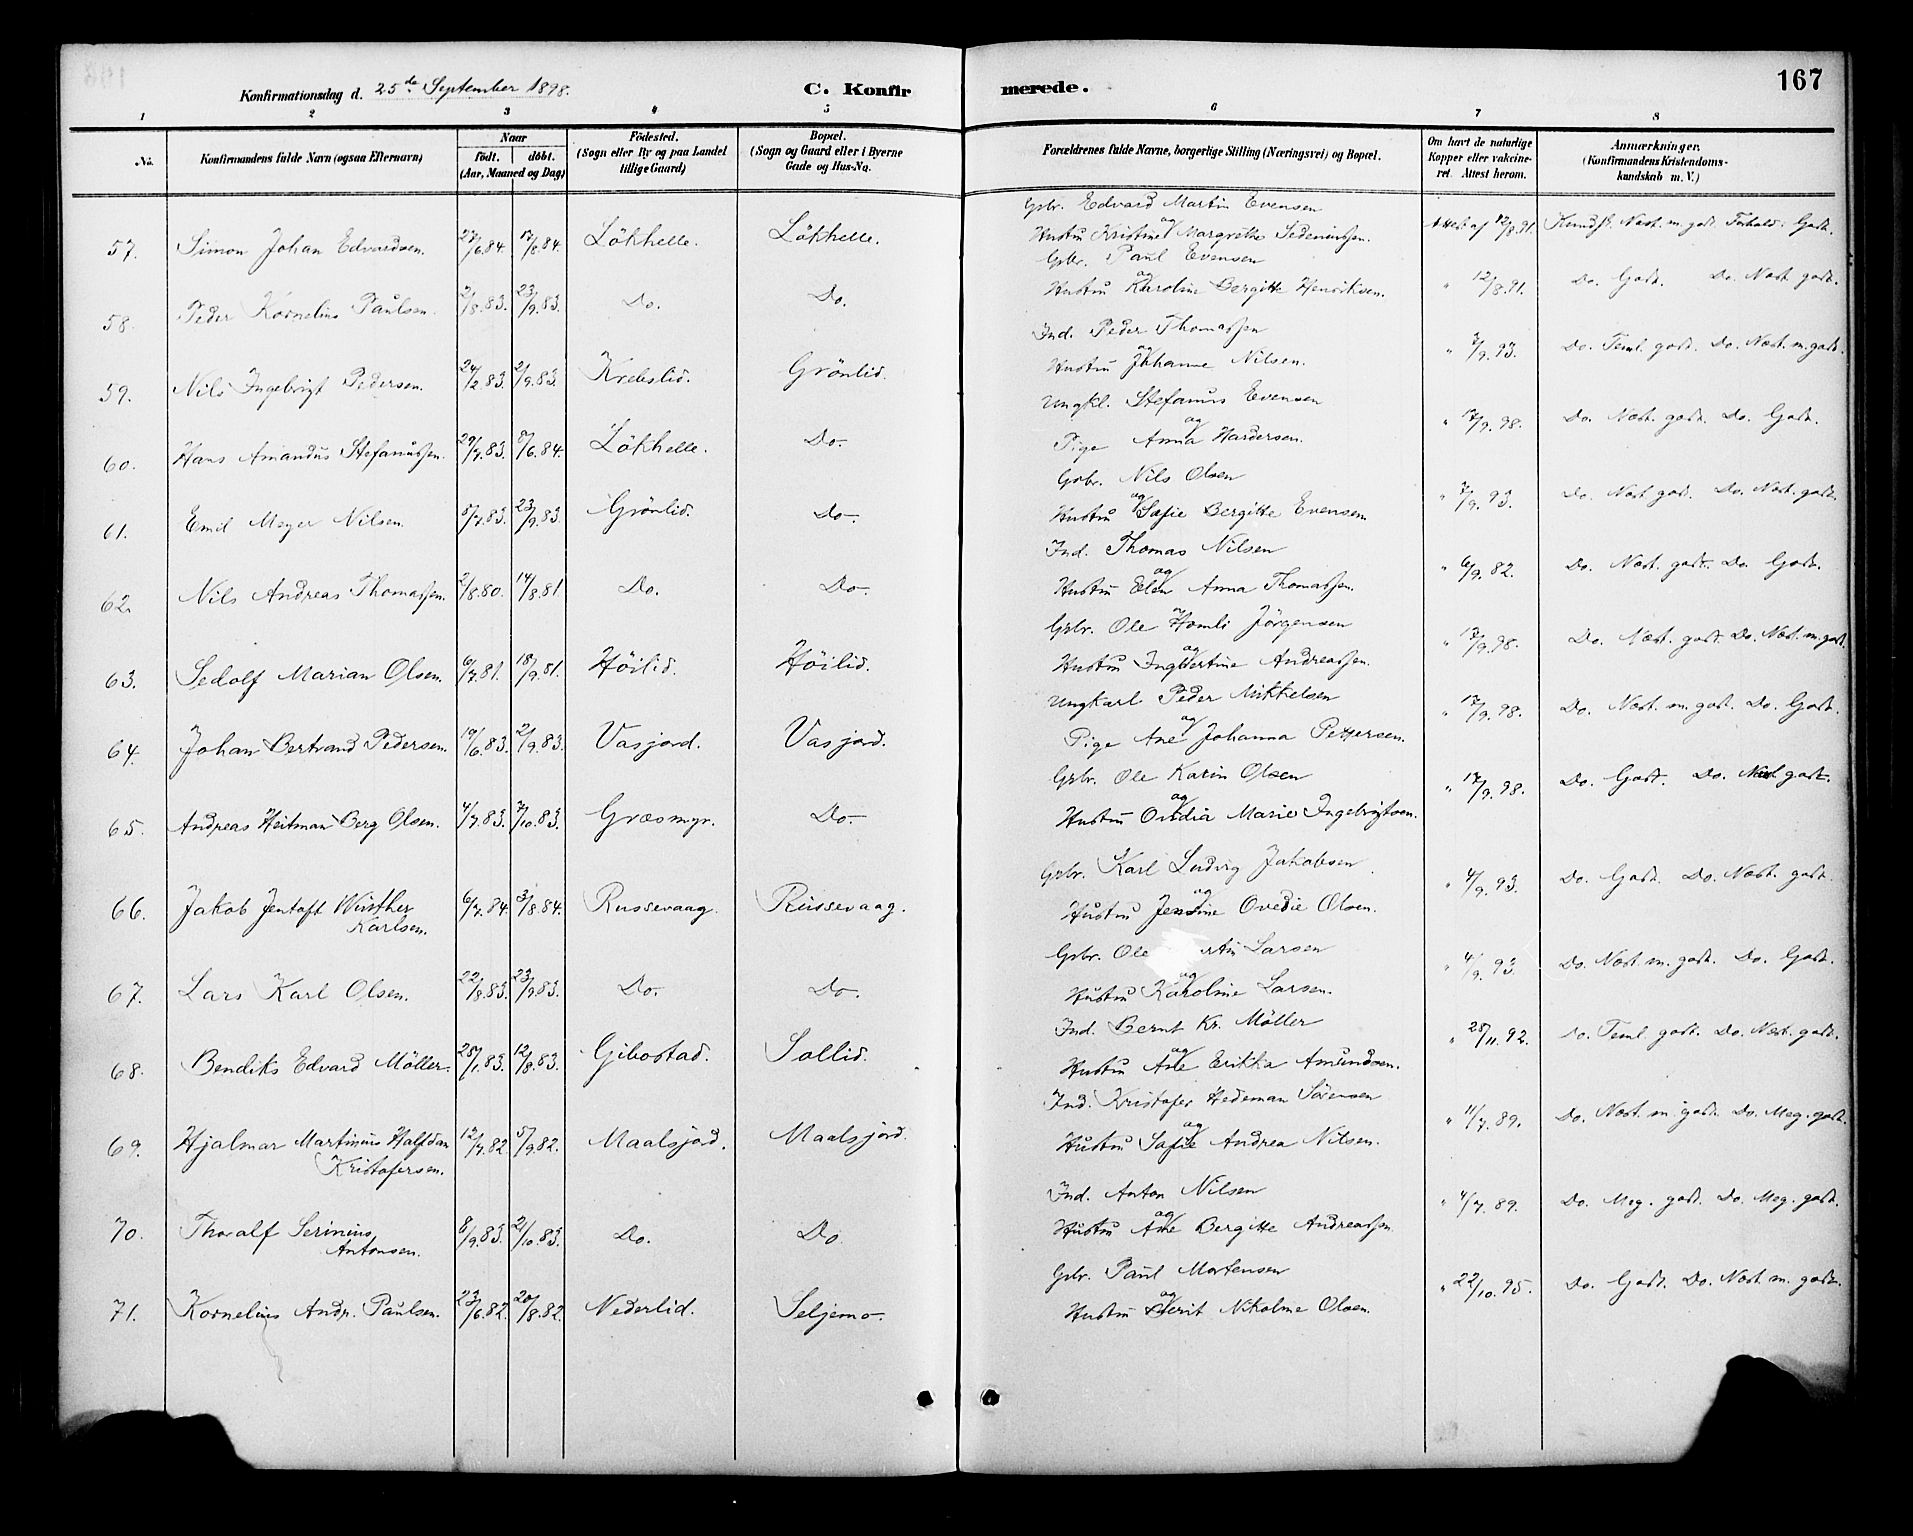 167
Konfirmationsdag d. 25de September 1898.
C. Konfirmerede.
1 2 3 4 5 6 7 8
No.
Konfirmandens fulde Navn (ogsaa Efternavn)
Naar
födt. döbt.
(Aar, Maaned og Dag)
Födested.
(Sogn eller By og paa Landet
tillige Gaard)
Bopæl.
(Sogn og Gaard eller i Byerne
Gade og Hus-No.
Forældrenes fulde Navne, borgerlige Stilling (Næringsvei) og Bopæl.
Om havt de naturlige
Kopper eller vakcine-
ret. Attest herom.
Anmærkninger.
(Konfirmandens Kristendoms-
kundskab m. V.)
57. Simon Johan Edvardsen. 27/6.84. 17/8.84. Lökhelle. Lökhelle.
Gbr. Edvard Martin Evensen
og
Hustru Kristine Margrethe
Attest af 12/8.91. Kundsk. Nest. m. godt. Forhold: Godt.
58. Peder Kornelius Paulsen. 2/8.83. 23/9.83. Do. Do.
Gbr. Paul Evensen
og
Hustru Karoline Bergitte Henriksen.
" 12/8.91. Do. Godt. Do. Nest. godt.
59. Nils Ingebrigt Pedersen. 24/2.83. 2/9.83. Krebslid. Grönlid.
Ind. Peder Thomassen
og
Hustru Johanne Nilsen.
" 7/9.93. Do. Teml. godt. Do. Nest. m. godt.
60. Hans Amandus Stefanussen. 29/7.83. 8/6.84. Lökhelle. Do.
Ungkl. Stefanus Evensen
og
Pige Anna Hardersen.
" 17/9.98. Do. Nest. godt. Do. Godt.
61. Emil Meyer Nilsen. 8/7.83. 23/9.83. Grönlid. Do.
Gbr. Nils Olsen
og
Hustru Sofie Bergitte Evensen.
" 7/9.93. Do. Nest. godt. Do. Nest. godt.
62. Nils Andreas Thomassen. 2/8.80. 14/8.81 Do. Do.
Ind. Thomas Nilsen
og
Hustru Elen Anna Thomassen.
" 6/9.82. Do. Nest. godt. Do. Godt.
63. Sedolf Marian Olsen. 6/7.81. 18/9.81. Höilid. Höilid.
Gbr. Ole Hemli Jörgensen
og
Hustru Ingbertine Andreassen.
" 17/9.98. Do. Nest. godt. Do. Nest. m. godt.
64. Johan Bertrand Pedersen. 19/6.83. 2/9.83. Vasjord. Vasjord.
Ungkarl Peder Mikkelsen
og
Pige Ane Johanna Pettersen.
" 17/9.98. Do. Nest. m. godt. Do. Godt.
65. Andreas Heitman Berg Olsen. 4/7.83. 7/10.83. Græsmyr. Do.
Gbr. Ole Karin Olsen
og
Hustru Ovidia Marie Ingebrigtsen.
" 17/9.98. Do. Godt. Do. Nest godt.
66. Jakob Jentoft Winther
Karlsen. 6/7.84. 3/8.84. Russevaag. Russevaag.
Gbr. Karl Ludvig Jakobsen
og
Hustru Jensine Ovedie Olsen.
" 4/9.93. Do. Godt. Do. Nest. godt.
67. Lars Karl Olsen. 22/8.83. 23/9.83. Do. Do.
Gbr. Ole rtin Larsen
og
Hustru Karoline Larsen.
" 4/9.93. Do. Nest. m. godt. Do. Godt.
68. Bendiks Edvard Möller. 28/1.83. 12/8.83. Gibostad. Sollid.
Ind. Bernt Kr. Möller
og
Hustru Ane Erikka Amundsen.
" 28/11.92. Do. Teml godt. Do. Nest. godt.
69. Hjalmar Martinius Halfdan
Kristofersen. 12/7.82. 5/9.82. Maalsjord. Maalsjord.
Ind. Kristofer Hedeman Sörensen
og
Hustru Sofie Andrea Nilsen.
" 11/7.89. Do. Nest. m. godt. Do. Meg. godt.
70. Thoralf Serinius
Antonsen. 8/9.83. 21/10.83. Do. Do.
Ind. Anton Nilsen
og
Hustru Ane Bergitte Andreassen
" 4/7.89. Do. Meg. godt. Do. Meg. godt.
71. Kornelius Andr. Paulsen. 23/6.82. 20/8.82. Nederlid. Seljemo.
Gbr. Paul Mortensen
og
Hustru Berit Nikoline Olsen.
" 22/10.95. Do. Godt. Do. Nest. m. godt.